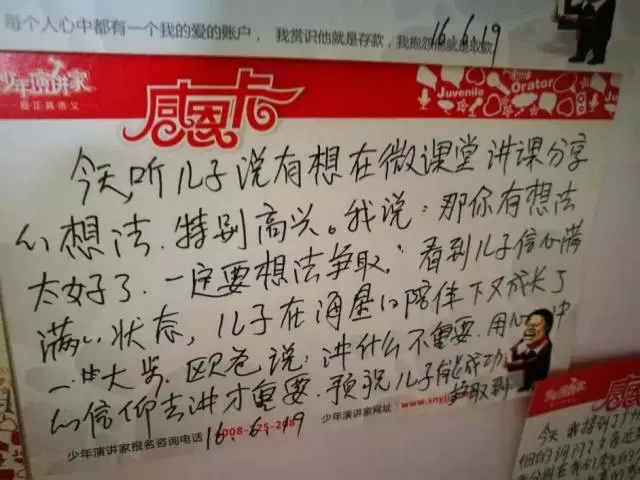 每个人心中都有一个我的爱的账户，我赏识他就是存款，我抱怨他就是取款
16.6.19
少年演讲家
爱正真贵义
感恩卡
Juvenile
Orator
今天,听儿子说有想在微课堂讲课分享
的想法.特别高兴。我说：那你有想法
太好了.一定要想法争取。看到儿子信心满
满的状态，儿子在海星的陪伴下又成长了
一大步.欧爸说：讲什么不重要.用心中
的信仰去讲才重要.预祝儿子能成功
争取到
少年演讲家报名咨询电话
少年演讲家网址：www.snyj
16.6.19
感恩
今天